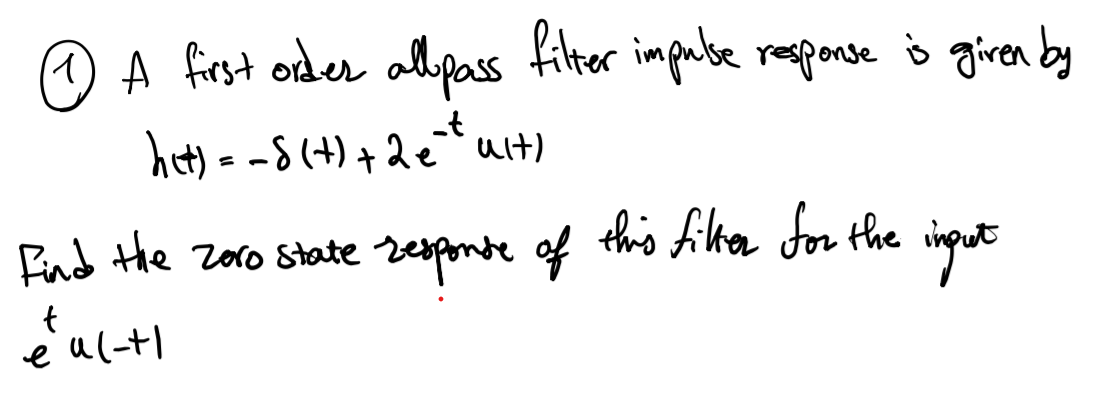 ① A first order allpass filter impulse response is given by
h(t) = -δ(t) + 2e^{-t} u(t)
Find the zero state response of this filter for the input
e^{t} u(-t)